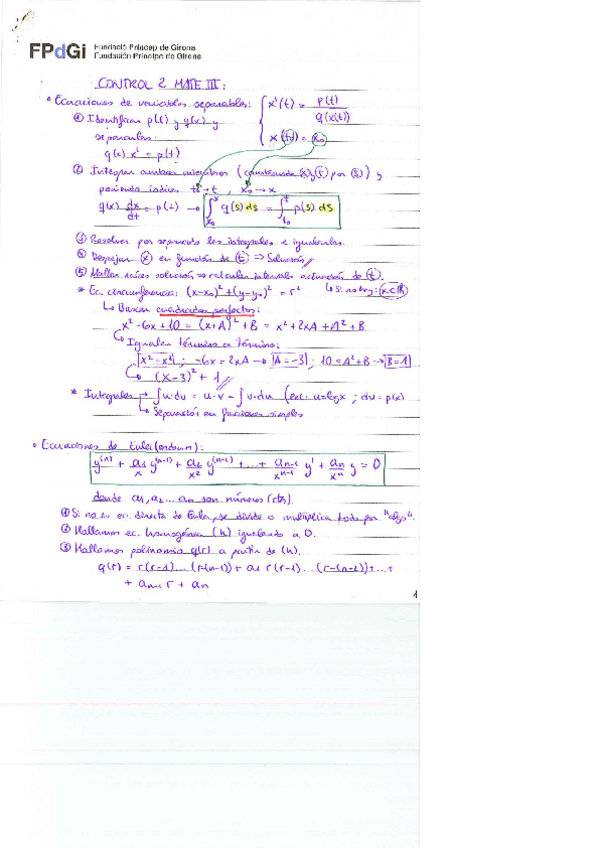 FPdGi Fundació Príncep de Girona
Fundación Príncipe de Girona
CONTROL 2 MATE III:
• Ecuaciones de variables separables: { x'(t) = p(t) / q(x(t))
x(t0) = x0
① Identificar p(t) y q(x) y
separarlas:
q(x) x' = p(t)
② Integrar ambos miembros (cambiando (x) y (t) por (s)) y
poniendo índices t0 → t, x0 → x
q(x) dx/dt = p(t) → ∫x0^x q(s) ds = ∫t0^t p(s) ds
③ Resolver por separado las integrales e igualarlas.
④ Despejar (x) en función de (t) ⇒ Solución //
⑤ Hallar raíces solución ⇒ calcular intervalo actuación de (t).
↳ Si no hay: x∈ℝ
* Ec. circunferencia: (x-x0)² + (y-y0)² = r²
↳ Buscar cuadrados perfectos:
x² - 6x + 10 = (x+A)² + B = x² + 2xA + A² + B
↳ Igualar término a término:
x² = x² ; -6x = 2xA → A = -3 ; 10 = A² + B → B = 1
↳ (x-3)² + 1 //
* Integrales → ∫u·dv = u·v - ∫v·du (ex: u=logx ; dv = p(x)
↳ Separación en funciones simples
• Ecuaciones de Euler (orden n):
y^(n) + a1/x y^(n-1) + a2/x² y^(n-2) + ... + an-1/x^(n-1) y' + an/x^n y = 0
donde a1, a2... an son números (ctes).
① Si no es ec. directa de Euler, se divide o multiplica todo por "algo".
② Hallamos ec. homogénea (h) igualando a 0.
③ Hallamos polinomio q(r) a partir de (h).
q(r) = r(r-1)...(r-(n-1)) + a1 r(r-1)...(r-(n-2)) + ... +
+ an-1 r + an
1